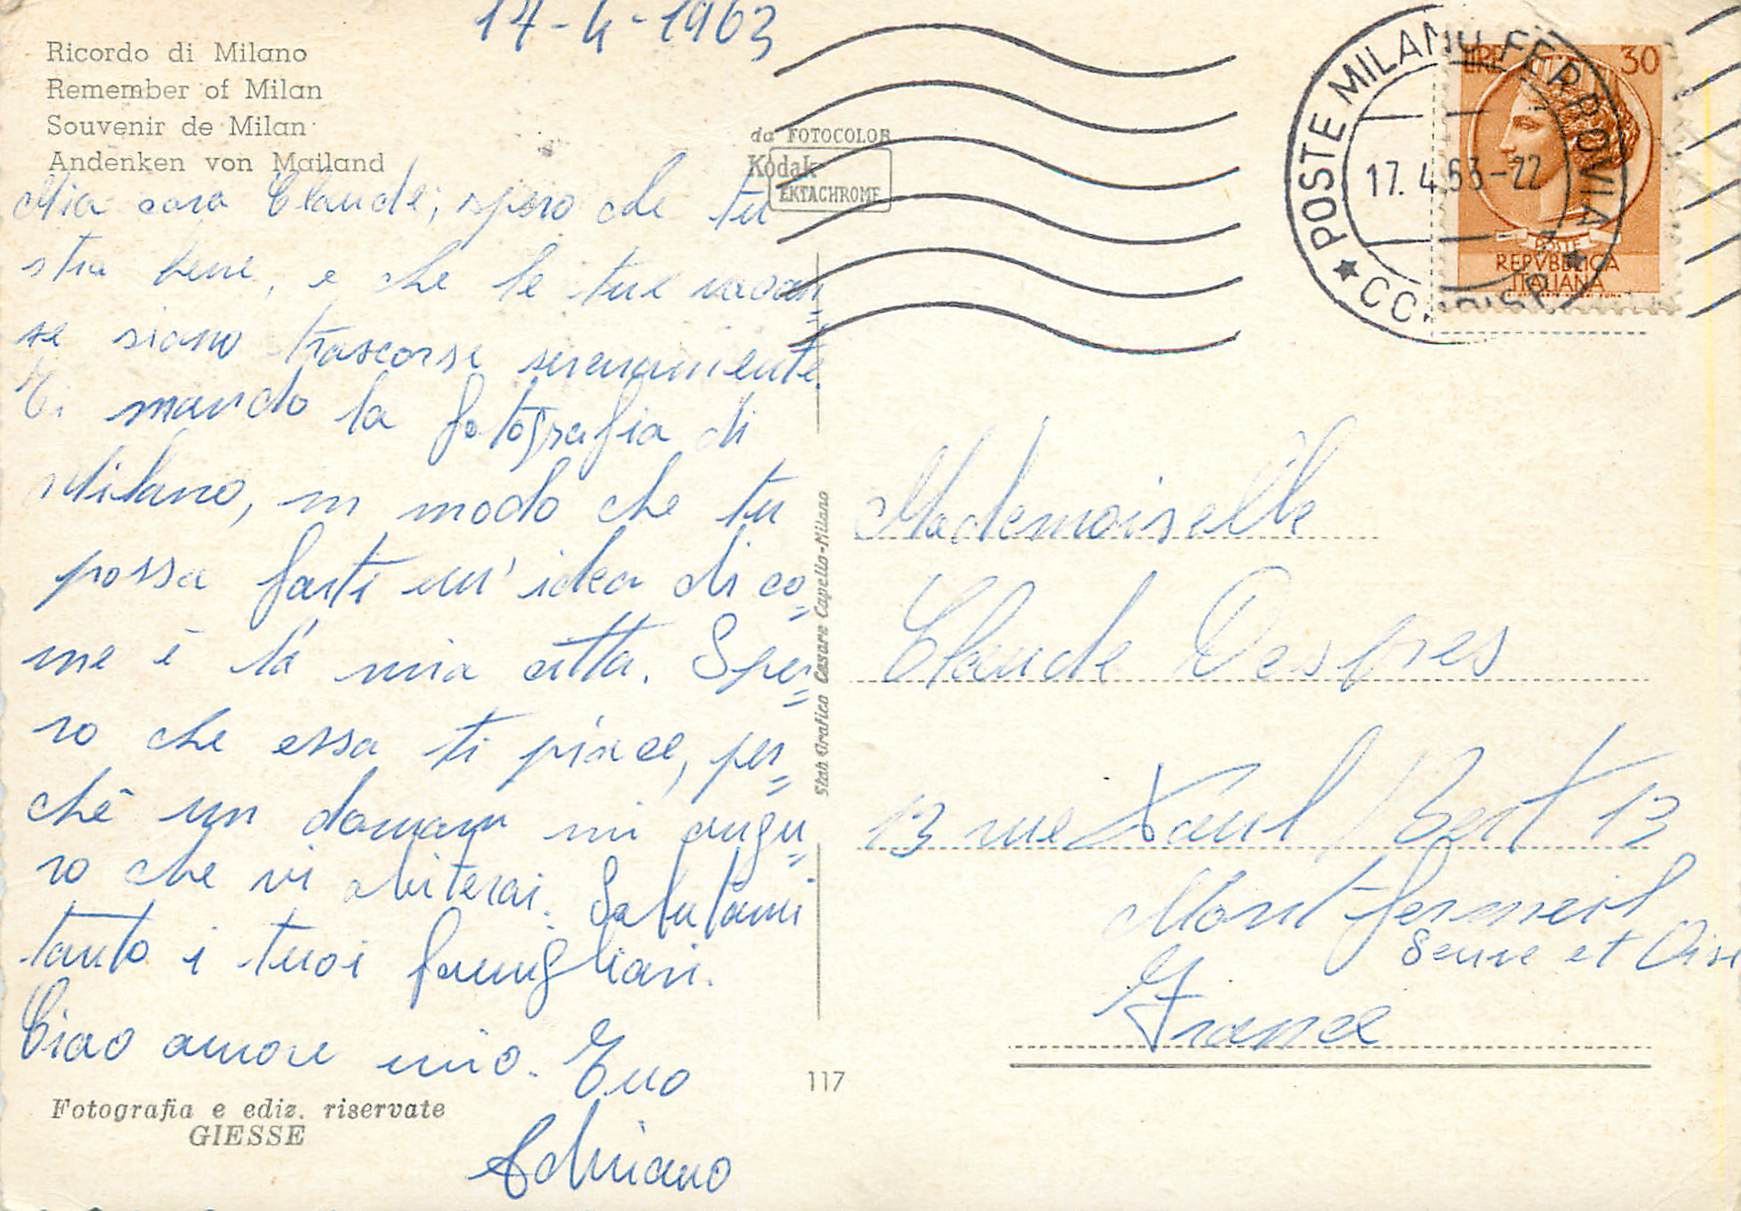 17-4-1963
Ricordo di Milano
Remember of Milan
Souvenir de Milan
Andenken von Mailand
Mia cara Claude, spero che tu
stia bene, e che le tue vacan=
se siano trascorse serenamente.
Ti mando la fotografia di
Milano, in modo che tu
possa farti un'idea di co=
me è la mia città. Spe=
ro che essa ti piace, per=
chè un domani mi augu=
ro che vi abiterai. Salutami
tanto i tuoi famigliari.
Ciao amore mio. Tuo
Adriano
Fotografia e ediz. riservate
GIESSE
da FOTOCOLOR
Kodak
EKTACHROME
Stab. Grafico Cesare Capello-Milano
117
POSTE MILANO FERROVIA
17. 4. 63-22
LIRE 30
POSTE
REPVBBLICA
ITALIANA
Mademoiselle
Claude Desbres
13 rue Paul Bert 13
Montfermeil
Seine et Oise
France